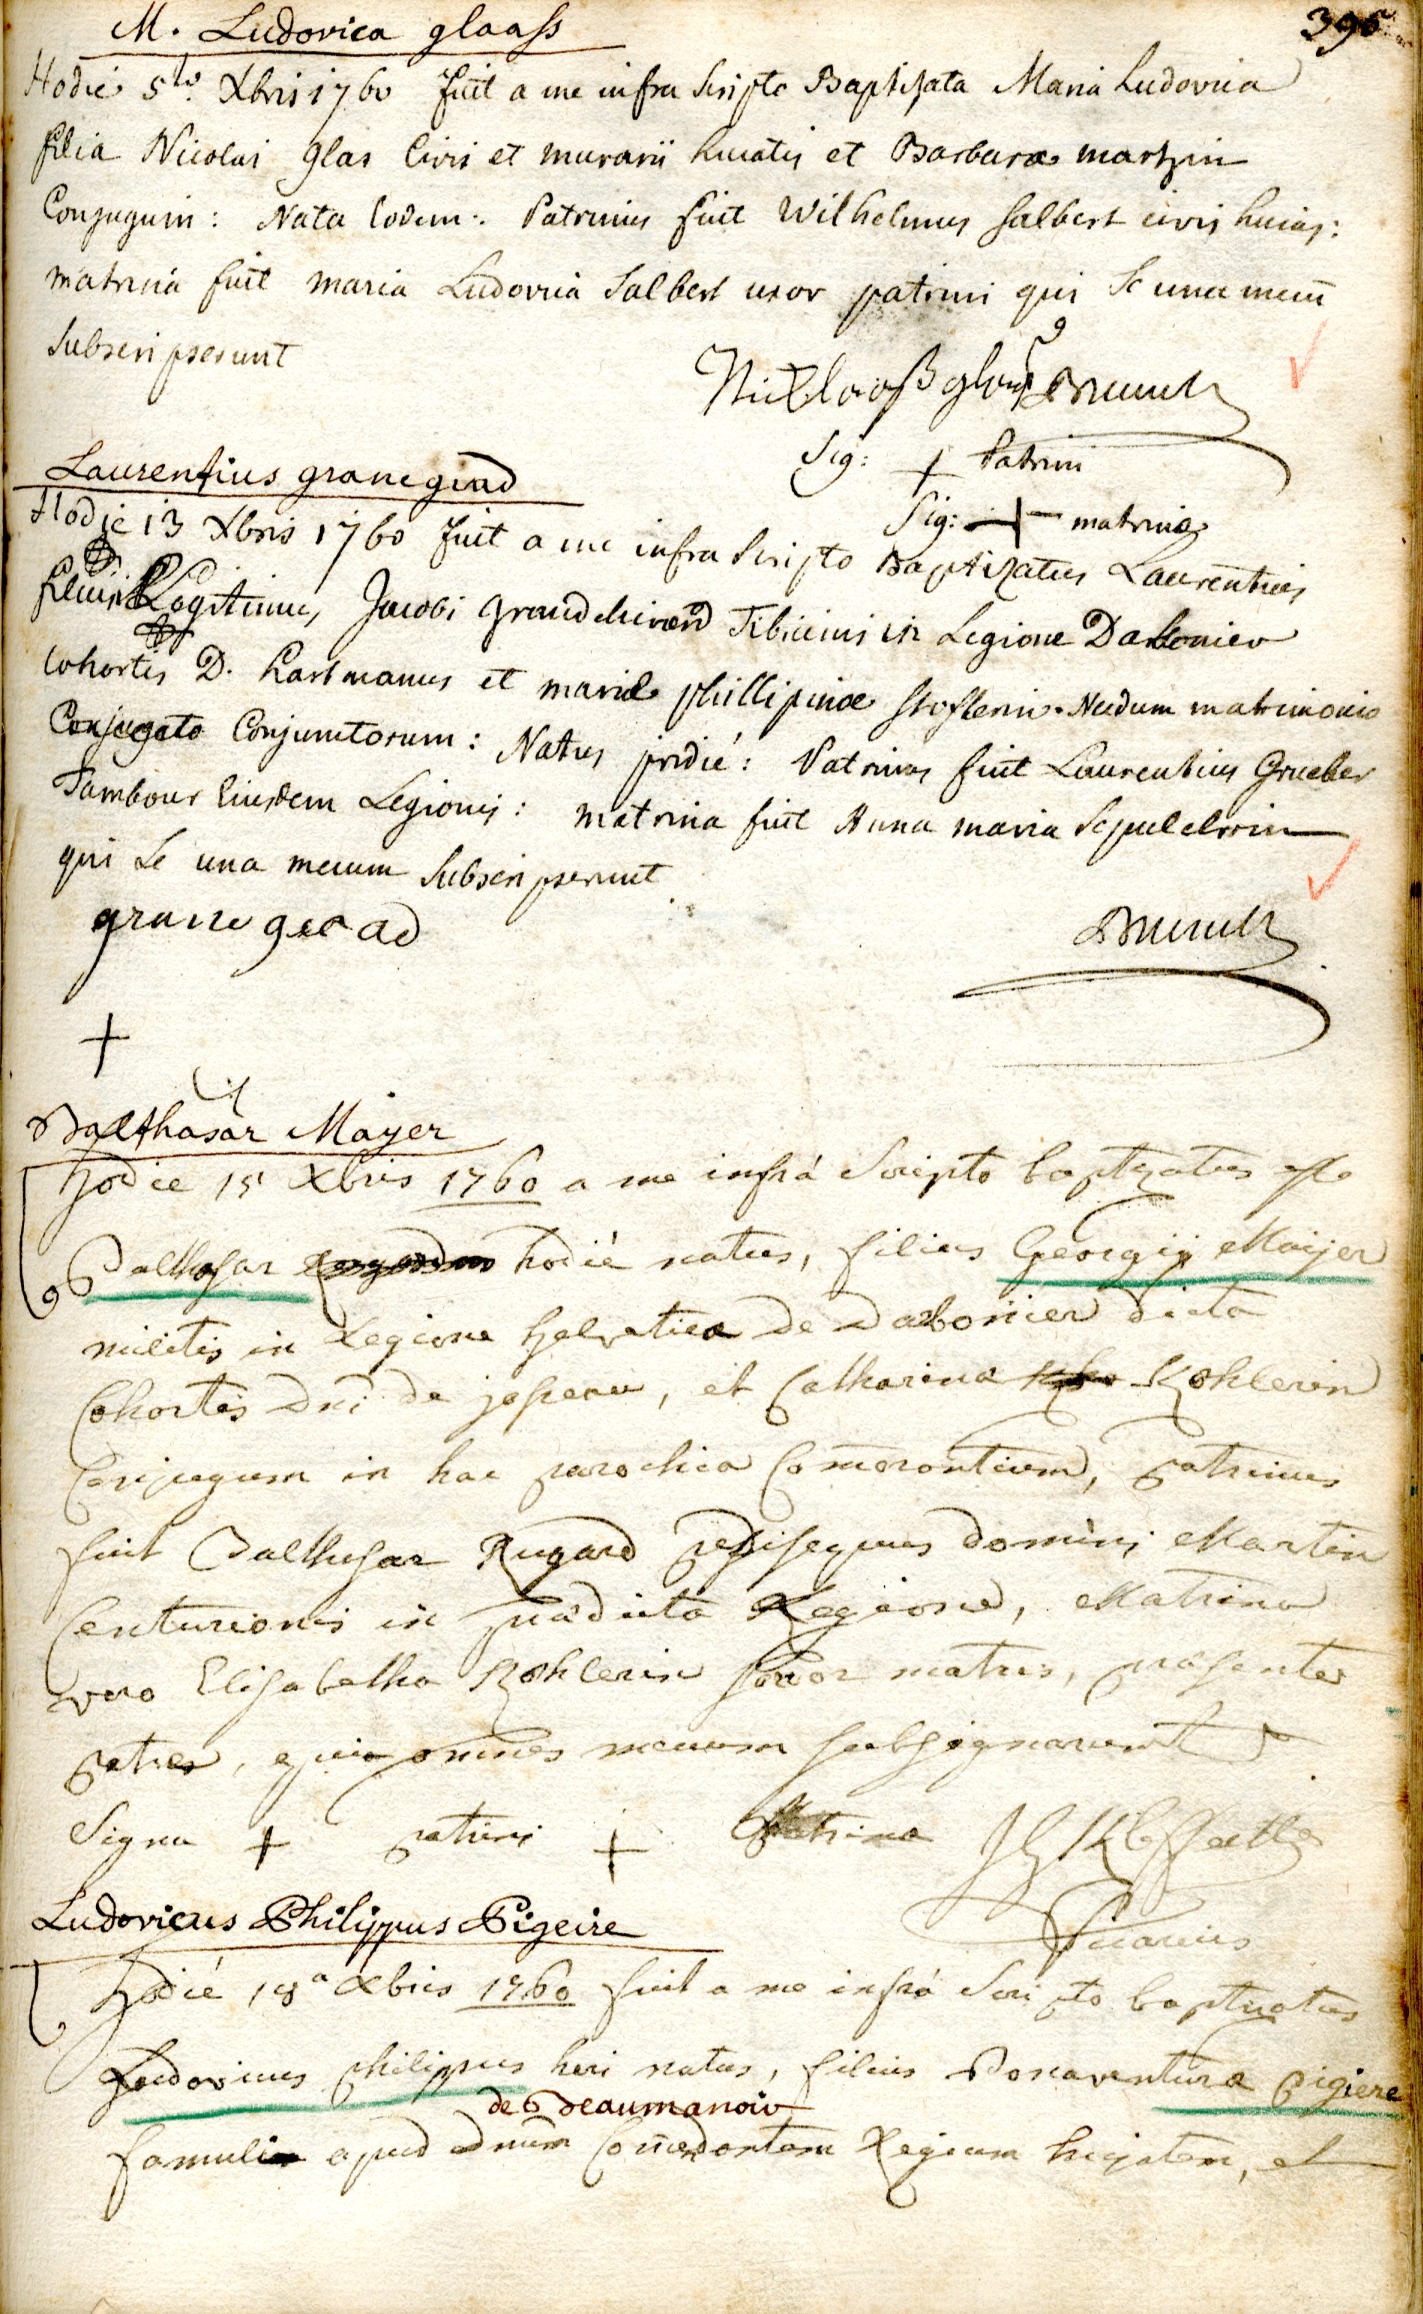 395
M. Ludovica glaaß
Hodie 5ta Xbris 1760 fuit a me infra scripto Baptizata Maria Ludovica
filia Nicolai glas Civis et murarii huiatis et Barbaræ martzin
Conjugum: Nata Eodem. Patrinus fuit Wilhelmus Salbert civis huias:
matrina fuit maria Ludovica Salbert uxor patrini qui se una mecum
subscripserunt
Nicklaoß glaß Brunck
Sig: + Patrini
Sig: + matrinæ
Laurentius granegirad
Hodie 13 Xbris 1760 fuit a me infra scripto Baptizatus Laurentius
filius Legitimus Jacobi Grandchirard Tibicinis in Legione Darbonier
Cohortis D. Hartmanus et mariæ phillipinæ Stofferin. Nudum matrimonio
Conjugato Conjunctorum: Natus pridié: Patrinus fuit Laurentius Grueber
Tambour Eiusdem Legionis: matrina fuit Anna maria Sepulchrin
qui se una mecum subscripserunt
grane gerad
Brunck
+
Balthasar Mayer
hodie 15 Xbris 1760 a me infrá scripto baptizatus est
Balthasar hodié natus, filius Georgij Maijer
militis in Legione helvetica de Darbonier dicta
Cohortis Dni de jospeau, et Catharinæ Kohlerin
Conjugum in hac parochia Comorantium, patrinus
fuit Balthasar Rugard pedisequus domini Martin
Centurionis in prædicta Legione, Matrina
vero Elisabetha Kohlerin soror matris, præsente
patre, qui omnes mecum subsignarunt
Signa + patrini + Matrinæ
Vicarius
Ludovicus Philippus Pigeire
hodié 18a Xbris 1760 fuit a me infrá scripto baptizatus
Ludovicus philippus heri natus, filius Bonaventuræ pigiere
de Beaumanoir
famuli apud dnum Comendantem Regium hujatem, et